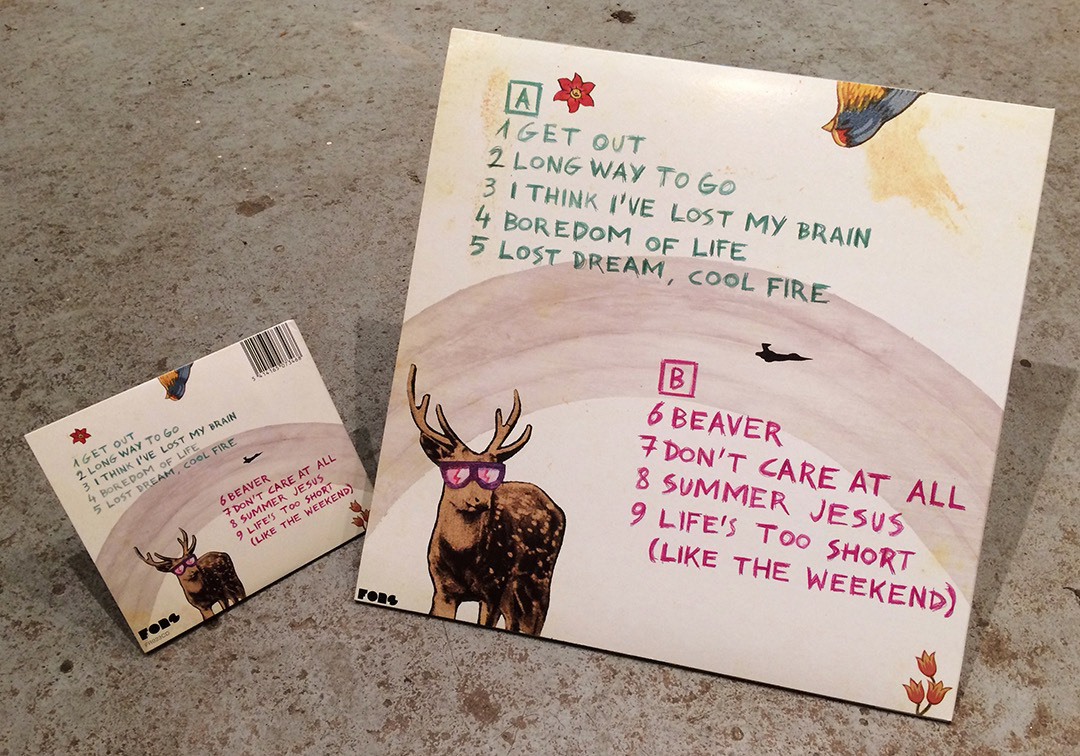 A
1 GET OUT
2 LONG WAY TO GO
3 I THINK I'VE LOST MY BRAIN
4 BOREDOM OF LIFE
5 LOST DREAM, COOL FIRE
B
6 BEAVER
7 DON'T CARE AT ALL
8 SUMMER JESUS
9 LIFE'S TOO SHORT
(LIKE THE WEEKEND)
FONS
1 GET OUT
2 LONG WAY TO GO
3 I THINK I'VE LOST MY BRAIN
4 BOREDOM OF LIFE
5 LOST DREAM, COOL FIRE
6 BEAVER
7 DON'T CARE AT ALL
8 SUMMER JESUS
9 LIFE'S TOO SHORT
(LIKE THE WEEKEND)
FONS